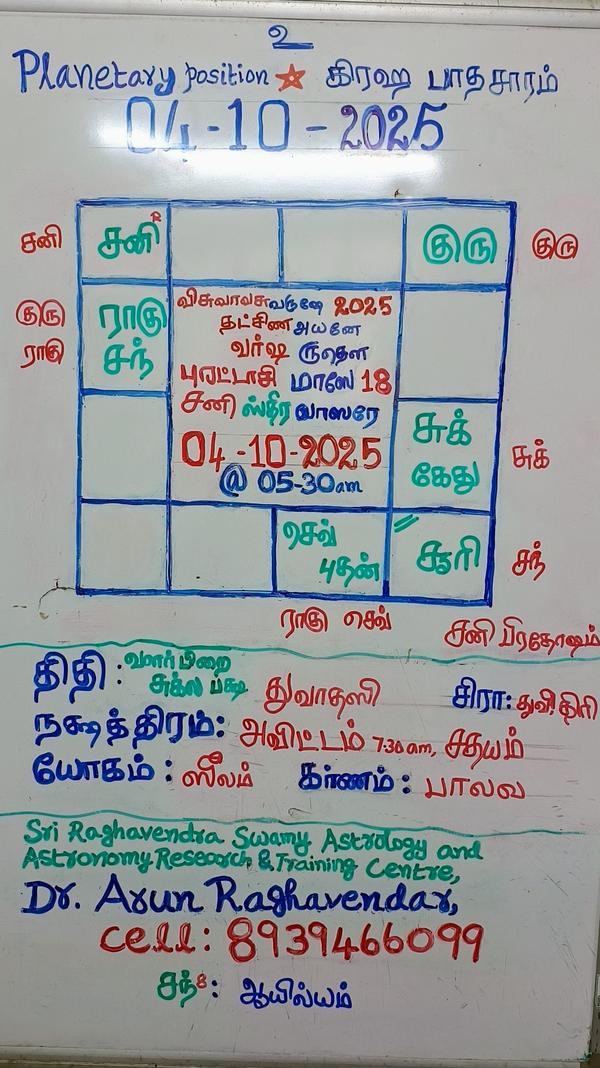 உ
Planetary position ★ கிரஹ பாதசாரம்
04-10-2025
சனி சனி R குரு குரு
குரு ராகு
ராகு சந்
விசுவாவசுவருஷே 2025
தட்சிண அயனே
வர்ஷ ருதௌ
புரட்டாசி மாஸே 18
சனி ஸ்திர வாஸரே
04-10-2025
@ 05-30am
சுக் சுக்
கேது
செவ் சூரி சந்
புதன்
ராகு செவ் சனி பிரதோஷம்
திதி : வளர்பிறை துவாதஸி சிரா: துவி, திரி
சுக்ல பக்ஷ
நக்ஷத்திரம்: அவிட்டம் 7.30am, சதயம்
யோகம் : ஸூலம் கர்ணம் : பாலவ
Sri Raghavendra Swamy Astrology and
Astronomy Research & Training Centre,
Dr. Arun Raghavendar,
cell: 8939466099
சந் 8 : ஆயில்யம்